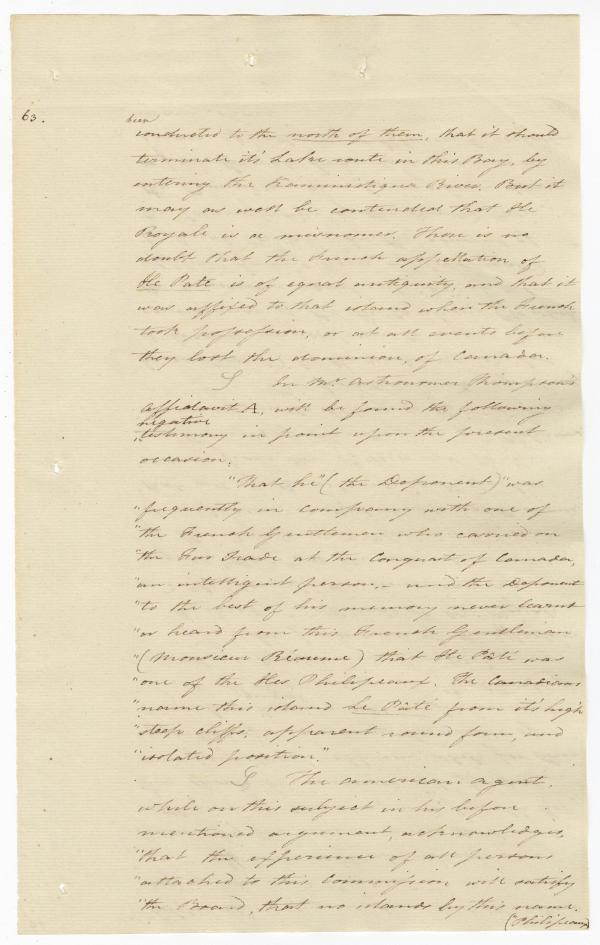 63.
been
conducted to the north of them, that it should
terminate it's Lake route in this Bay, by
entering the Kaministiqua River. But it
may as well be contended that Ile
Royale is a misnomer. There is no
doubt that the French appellation of
Ile Paté is of equal antiquity, and that it
was affixed to that island when the French
took possession, or at all events before
they lost the dominion, of Canada.
§ In Mr. Astronomer Thompson's
affidavit A, will be found the following
negative
testimony in point upon the present
occasion.
"That he" (the Deponent) "was
"frequently in company with one of
"the French Gentlemen who carried on
"the Fur Trade at the Conquest of Canada,
"an intelligent person,- and the Deponent
"to the best of his memory never learnt
"or heard from this French Gentleman
"(Monsieur Réaume) that Ile Pâté was
"one of the Iles Philipeaux. The Canadians
"name this island Le Pâté from it's high
"steep cliffs, apparent round form, and
"isolated position."
§ The American Agent,
while on this subject in his before
mentioned argument, acknowledges,
"that the experience of all persons
"attached to this Commission will satisfy
"the Board, that no islands by this name.
(Philipeaux)